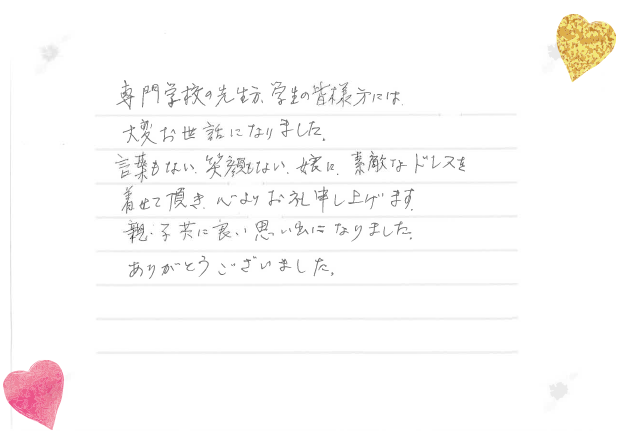 専門学校の先生方、学生の皆様方には
大変お世話になりました。
言葉もない、笑顔もない、娘に、素敵なドレスを
着せて頂き、心よりお礼申し上げます。
親・子共に良い思い出になりました。
ありがとうございました。